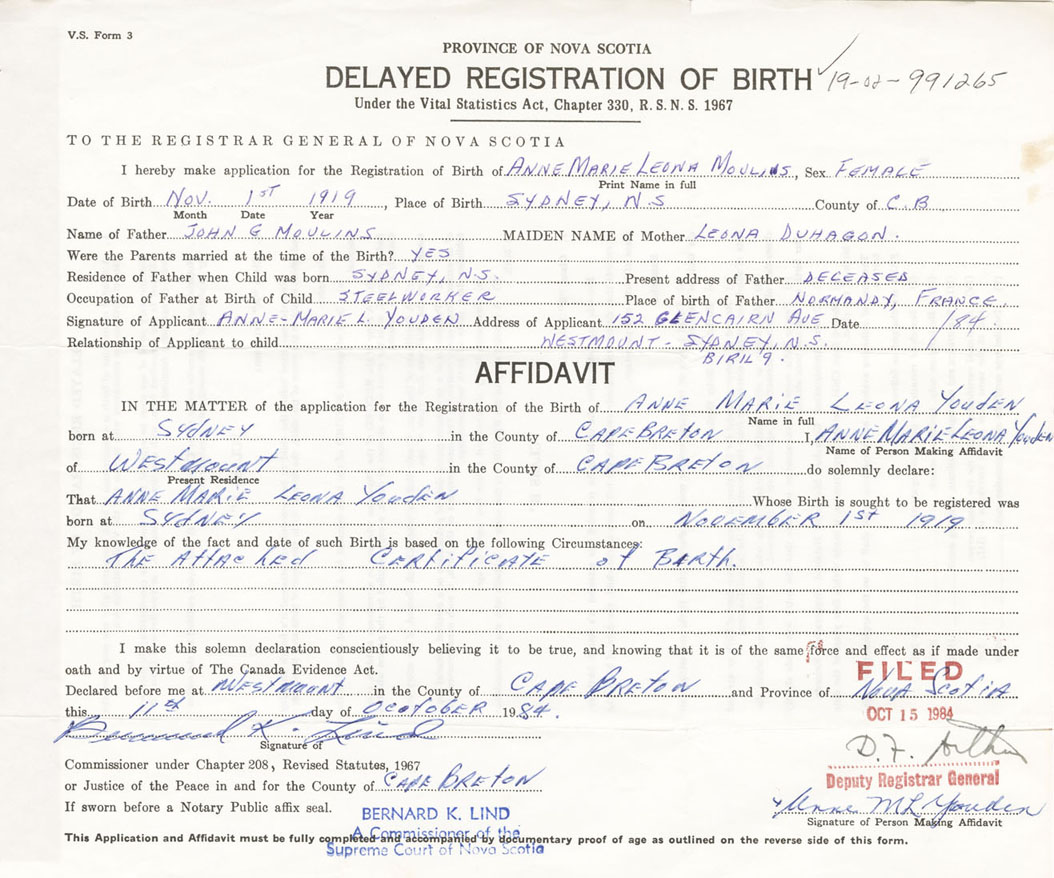 V.S. Form 3
PROVINCE OF NOVA SCOTIA
DELAYED REGISTRATION OF BIRTH 19-02-991265
Under the Vital Statistics Act, Chapter 330, R.S.N.S. 1967
TO THE REGISTRAR GENERAL OF NOVA SCOTIA
I hereby make application for the Registration of Birth of ANNE MARIE LEONA MOULINS, Sex FEMALE
Print Name in full
Date of Birth NOV. 1ST 1919, Place of Birth SYDNEY, N.S County of C.B
Month Date Year
Name of Father JOHN G MOULINS MAIDEN NAME of Mother LEONA DUHAGON.
Were the Parents married at the time of the Birth? YES
Residence of Father when Child was born SYDNEY, N.S. Present address of Father DECEASED
Occupation of Father at Birth of Child STEELWORKER Place of birth of Father NORMANDY, FRANCE
Signature of Applicant ANNE-MARIE L. YOUDEN Address of Applicant 152 GLENCAIRN AVE Date /84.
Relationship of Applicant to child WESTMOUNT - SYDNEY, N.S.
AFFIDAVIT
IN THE MATTER of the application for the Registration of the Birth of ANNE MARIE LEONA YOUDEN
Name in full
born at SYDNEY in the County of CAPE BRETON I, ANNE MARIE LEONA YOUDEN
Name of Person Making Affidavit
of WESTMOUNT in the County of CAPE BRETON do solemnly declare:
Present Residence
That ANNE MARIE LEONA YOUDEN Whose Birth is sought to be registered was
born at SYDNEY on NOVEMBER 1ST 1919
My knowledge of the fact and date of such Birth is based on the following Circumstances:
THE ATTACHED CERTIFICATE of BIRTH.
I make this solemn declaration conscientiously believing it to be true, and knowing that it is of the same force and effect as if made under
oath and by virtue of The Canada Evidence Act.
FILED
Declared before me at WESTMOUNT in the County of CAPE BRETON and Province of NOVA SCOTIA
this 11th day of OCOTOBER 1984.
OCT 15 1984
Bernard K. Lind
Signature of
D.F. Arthur
Commissioner under Chapter 208, Revised Statutes, 1967
Deputy Registrar General
or Justice of the Peace in and for the County of CAPE BRETON
If sworn before a Notary Public affix seal.
Anne M L Youden
Signature of Person Making Affidavit
BERNARD K. LIND
A Commissioner of the
Supreme Court of Nova Scotia
This Application and Affidavit must be fully completed and accompanied by documentary proof of age as outlined on the reverse side of this form.